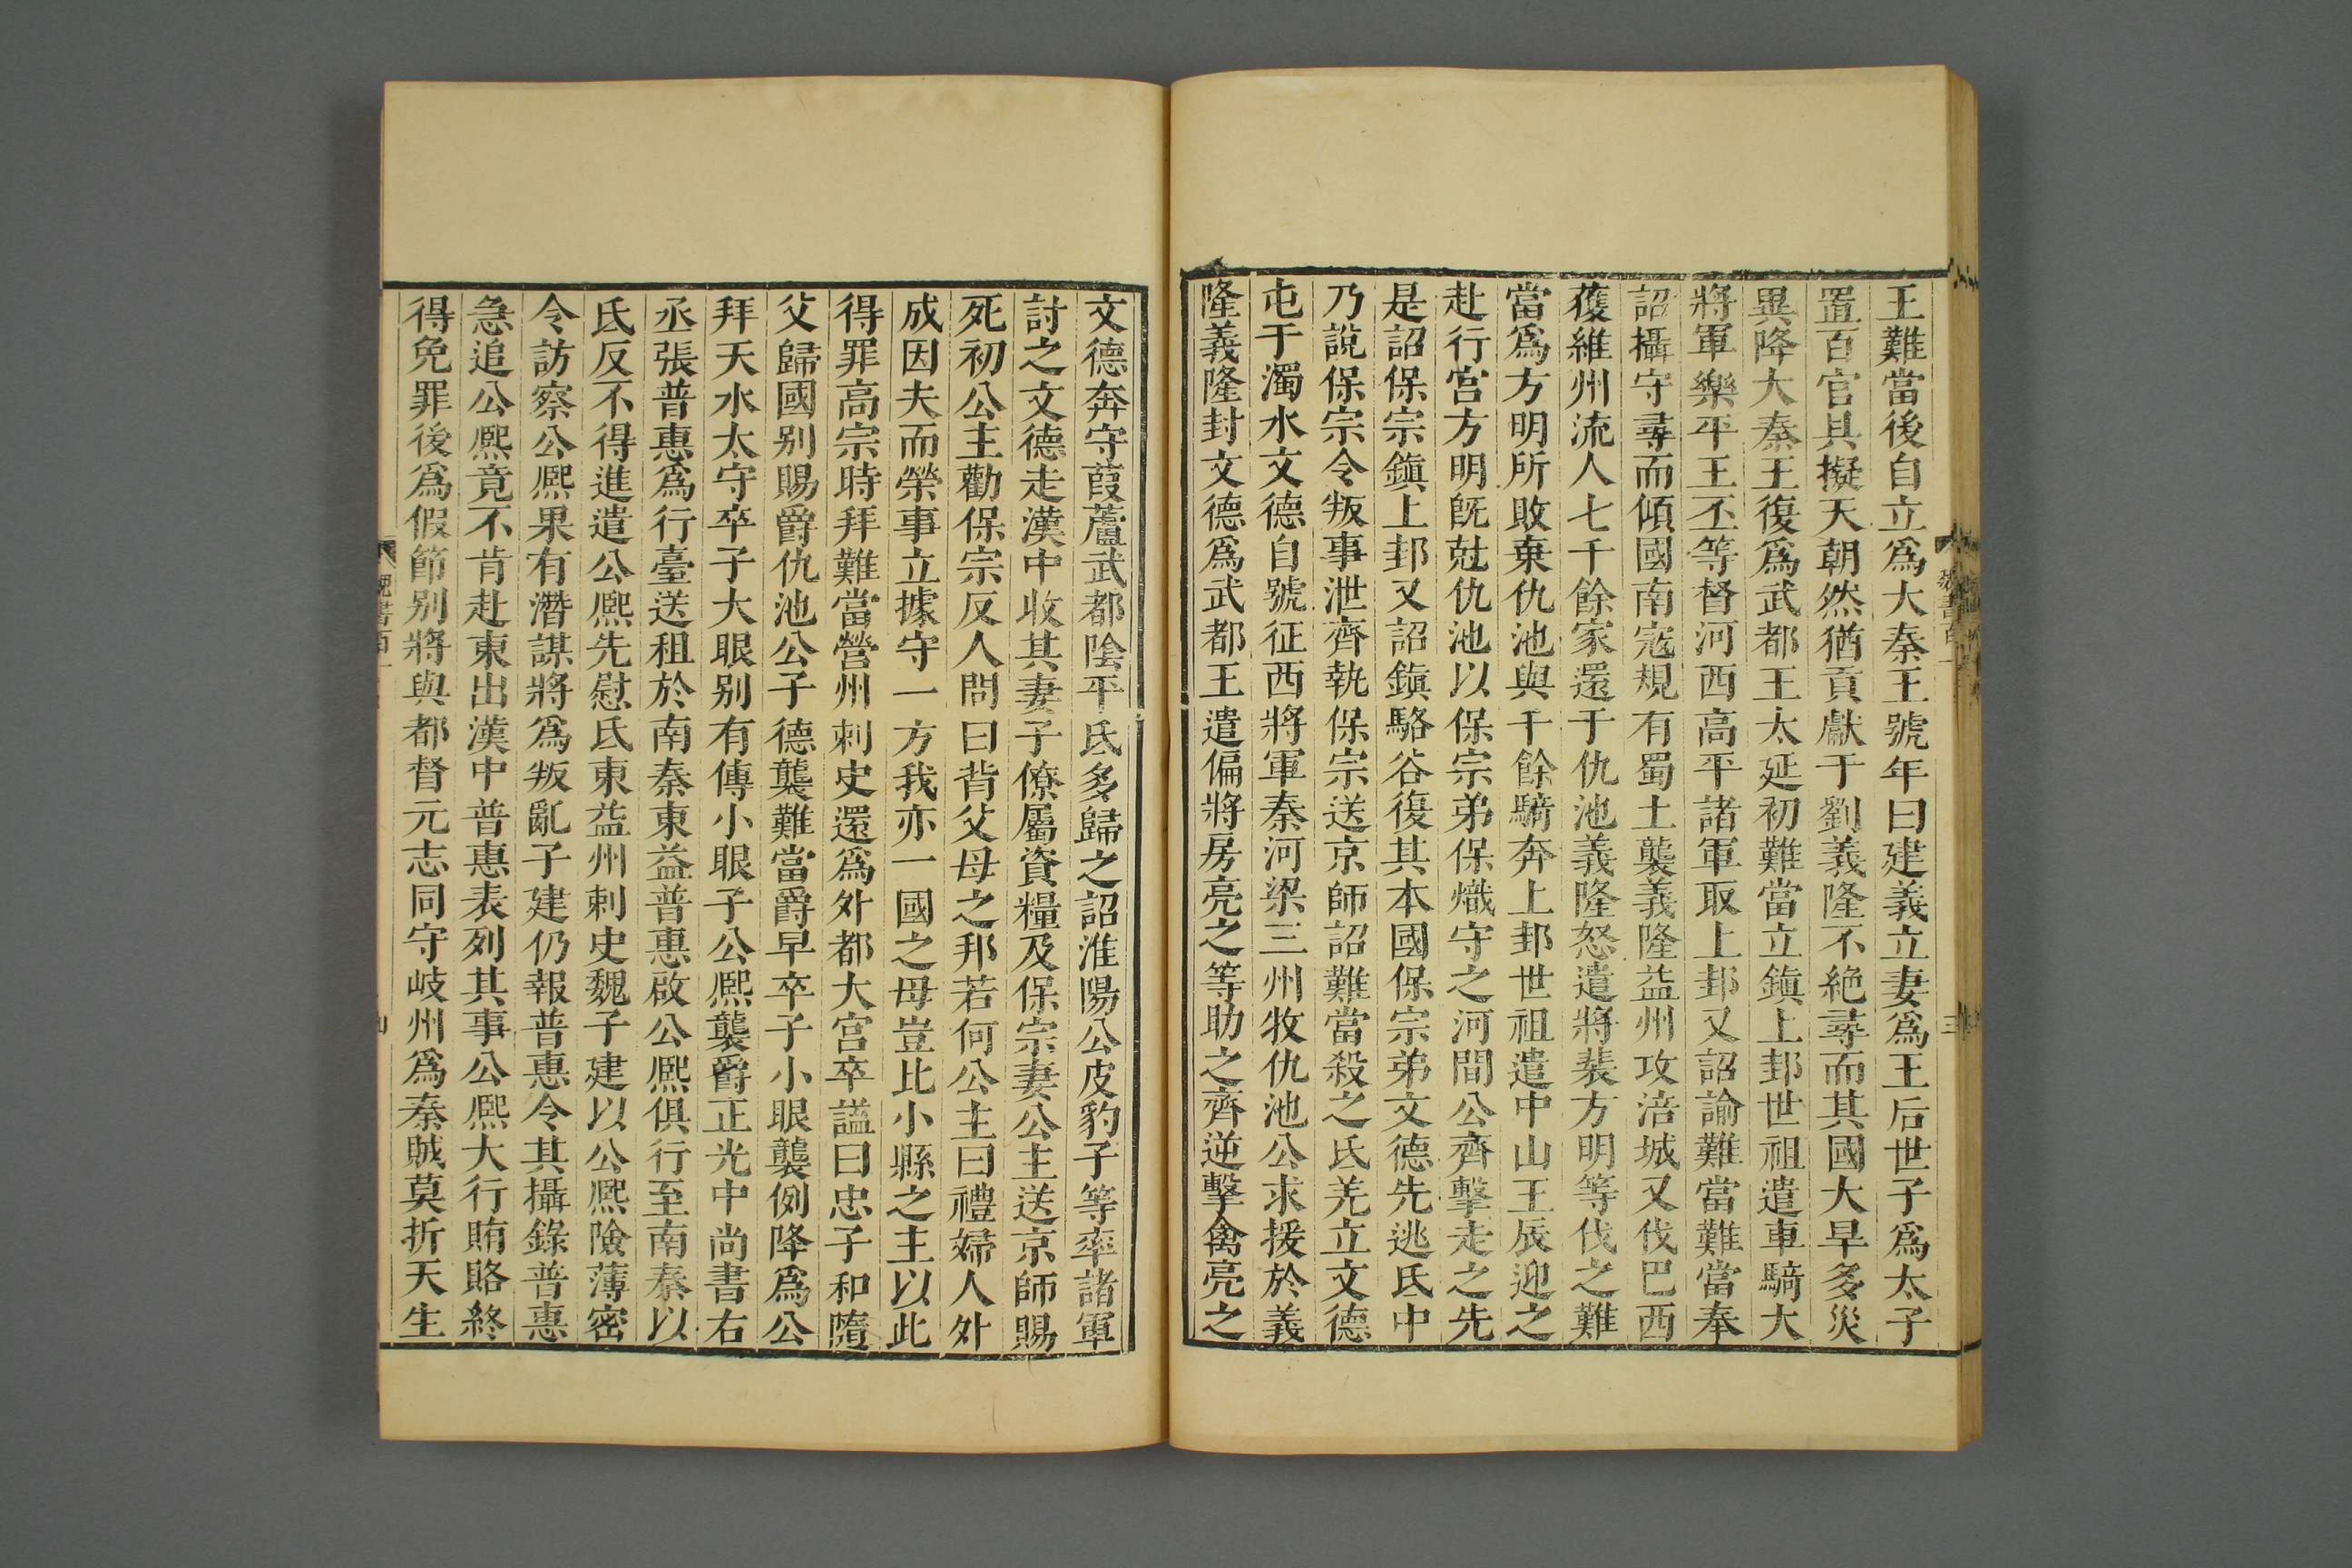 王難當後自立爲大秦王號年曰建義立妻爲王后世子爲太子
置百官具擬天朝然猶貢獻于劉義隆不絶尋而其國大旱多災
異降大秦王復爲武都王太延初難當立鎮上邽世祖遣車騎大
將軍樂平王丕等督河西高平諸軍取上邽又詔諭難當難當奉
詔攝守尋而傾國南寇規有蜀土襲義隆益州攻涪城又伐巴西
獲維州流人七千餘家還于仇池義隆怒遣將裴方明等伐之難
當爲方明所敗棄仇池與千餘騎奔上邽世祖遣中山王辰迎之
赴行宮方明旣尅仇池以保宗弟保熾守之河間公齊擊走之先
是詔保宗鎮上邽又詔鎮駱谷復其本國保宗弟文德先逃氐中
乃說保宗令叛事泄齊執保宗送京師詔難當殺之氐羌立文德
屯于濁水文德自號征西將軍秦河梁三州牧仇池公求援於義
隆義隆封文德爲武都王遣偏將房亮之等助之齊逆擊禽亮之
文德奔守葭蘆武都陰平氐多歸之詔淮陽公皮豹子等率諸軍
討之文德走漢中收其妻子僚屬資糧及保宗妻公主送京師賜
死初公主勸保宗反人問曰背父母之邦若何公主曰禮婦人外
成因夫而榮事立據守一方我亦一國之母豈比小縣之主以此
得罪高宗時拜難當營州刺史還爲外都大宮卒謚曰忠子和隨
父歸國别賜爵仇池公子德襲難當爵早卒子小眼襲例降爲公
拜天水太守卒子大眼别有傳小眼子公熙襲爵正光中尚書右
丞張普惠爲行臺送租於南秦東益普惠啟公熙俱行至南秦以
氐反不得進遣公熙先慰氐東益州刺史魏子建以公熙險薄密
令訪察公熙果有潛謀將爲叛亂子建仍報普惠令其攝錄普惠
急追公熙竟不肯赴東出漢中普惠表列其事公熙大行賄賂終
得免罪後爲假節别將與都督元志同守岐州爲秦賊莫折天生